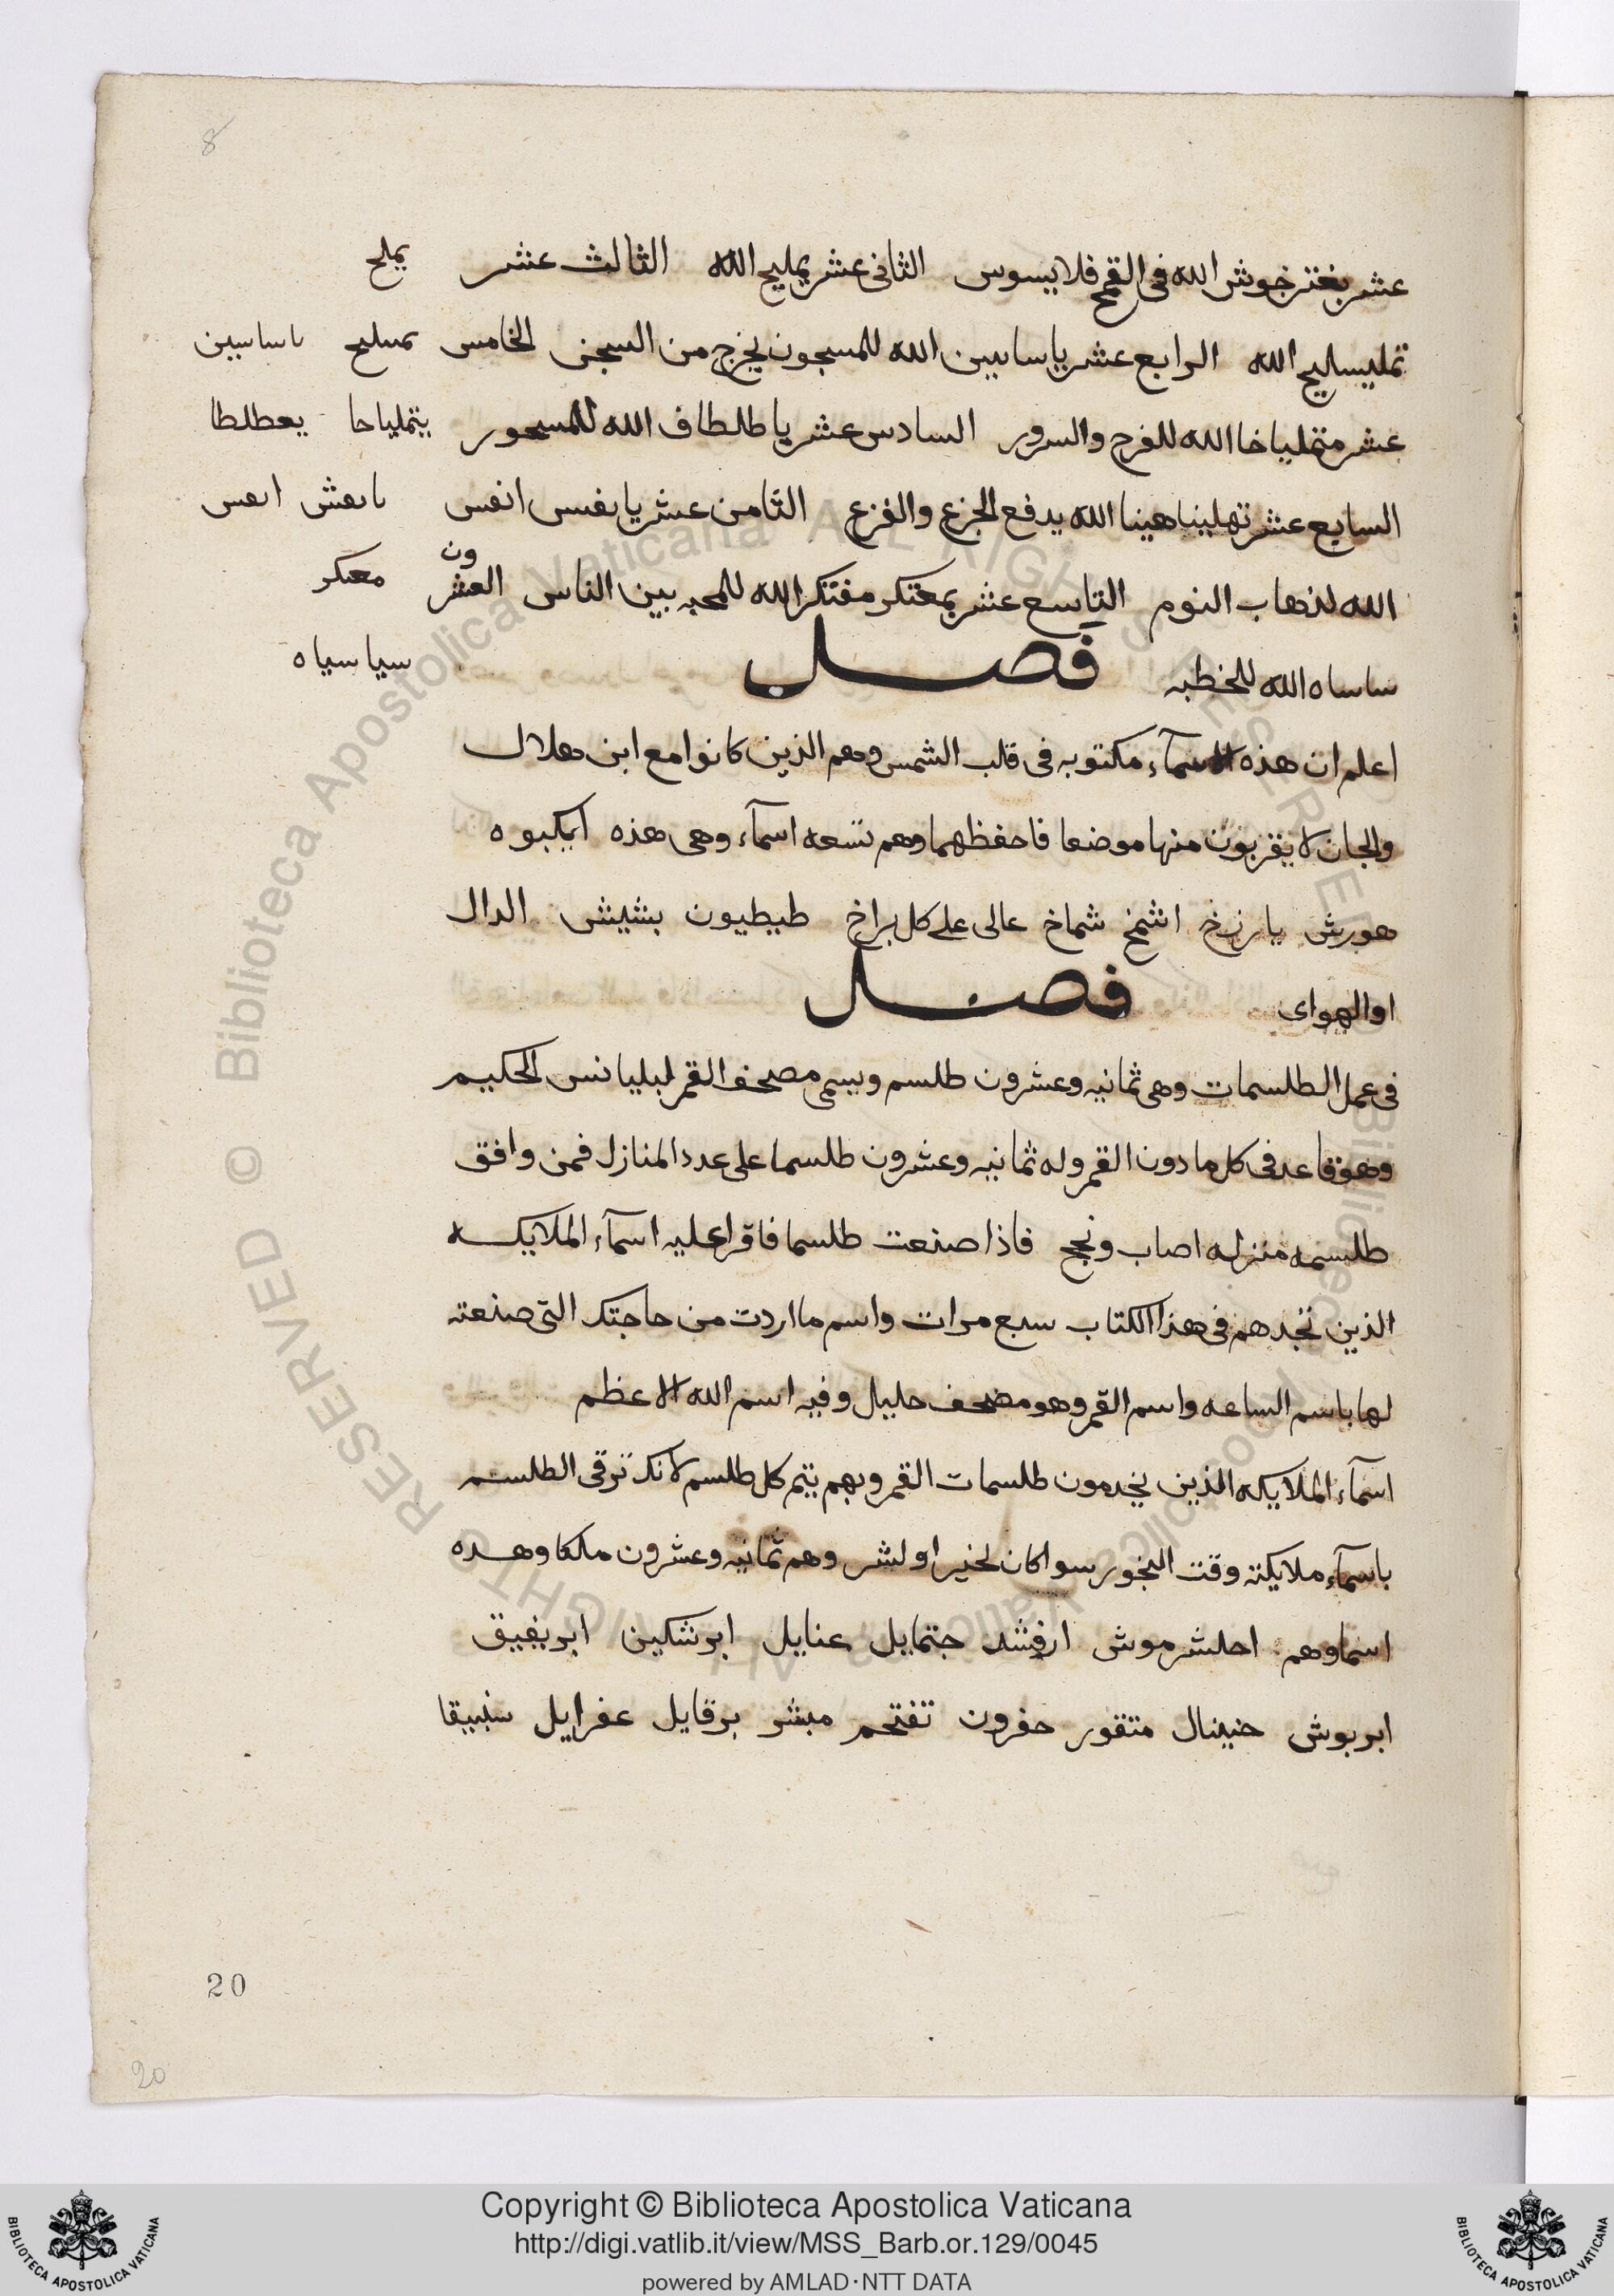 8
عشر بغتر خوش الله فى القمح فلا يسوس الثانى عشر يمليح الله الثالث عشر يملح
تمليساليح الله الرابع عشر ياساسين الله للمسجون يخرج من السجن الخامس مسليح ىاساسين
عشر متمليا خا الله للفرح والسرور السادس عشر يا طلطاف الله للمسحور يتملياحا يعطلطا
السابع عشر تهليناهينا الله يدفع الجزع والفزع الثامن عشر يا نفس انفس ىا ىعش اىعس
الله لذهاب النوم التاسع عشر بمعتكر مفتكر الله للمحبه بين الناس العشرون معىكر
ساساه الله للخطبه فصل سيا سياه
اعلم ان هذه الاسمآء مكتوبه فى قالب الشمس وهم الذين كانوا مع ابن هلال
والجان لا يقربون منها موضعا فاحفظهما وهم تسعه اسمآء وهى هذه ايكبوه
هورش يا رزخ اشمخ شماخ عالى على كل براخ طيطيون بشيش الدال
او الهواى فصل
فى عمل الطلسمات وهى ثمانيه وعشرون طلسم ويسمى مصحف القمر لبليانس الحكيم
وهو قاعد فى كل ما دون القمر وله ثمانيه وعشرون طلسما على عدد المنازل فمن وافق
طلسمه منزله اصاب ونجح فاذا صنعت طلسما فاقرا عليه اسمآء الملايكه
الذين تجدهم فى هذا الكتاب سبع مرات واسم ما اردت من حاجتك التى صنعته
لها باسم الساعه واسم القمر وهو مصحف جليل وفيه اسم الله الاعظم
اسمآء الملايكه الذين يخدمون طلسمات القمر وبهم يتم كل طلسم لانك ترقى الطلسم
باسمآء ملايكته وقت البخور سوا كان لخير او لشر وهم ثمانيه وعشرون ملكا وهده
اسماوهم احلشرموش ارفشد جتمايل عنايل ابرشكين ابريفيق
ابربوش حنينال متقور حفرون تفتحم مبشر برقايل عفرايل سنبيقا
20
20
© Biblioteca Apostolica Vaticana ALL RIGHTS RESERVED
© Biblioteca Apostolica Vaticana ALL RIGHTS RESERVED
Copyright © Biblioteca Apostolica Vaticana
http://digi.vatlib.it/view/MSS_Barb.or.129/0045
powered by AMLAD·NTT DATA
BIBLIOTECA APOSTOLICA VATICANA
BIBLIOTECA APOSTOLICA VATICANA